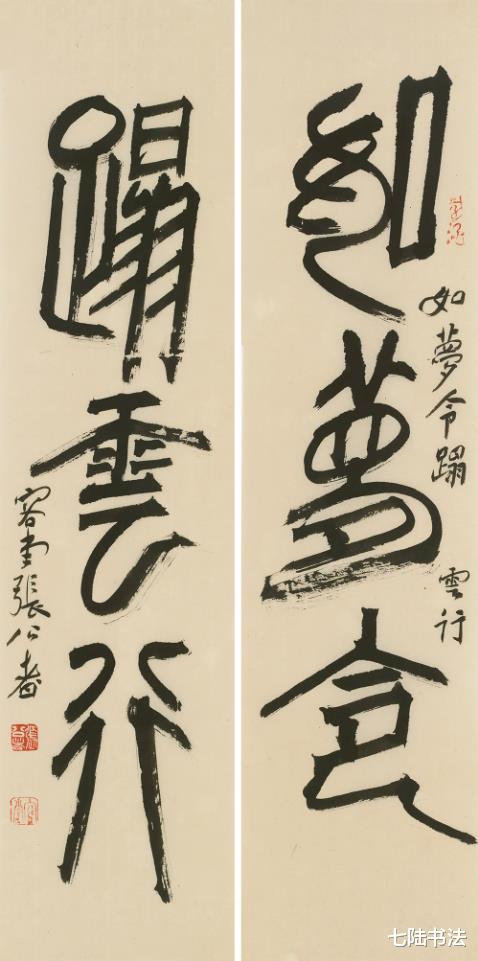 如夢令
如夢令蹋
雲行
蹋雲行
容堂張公者
七陆书法